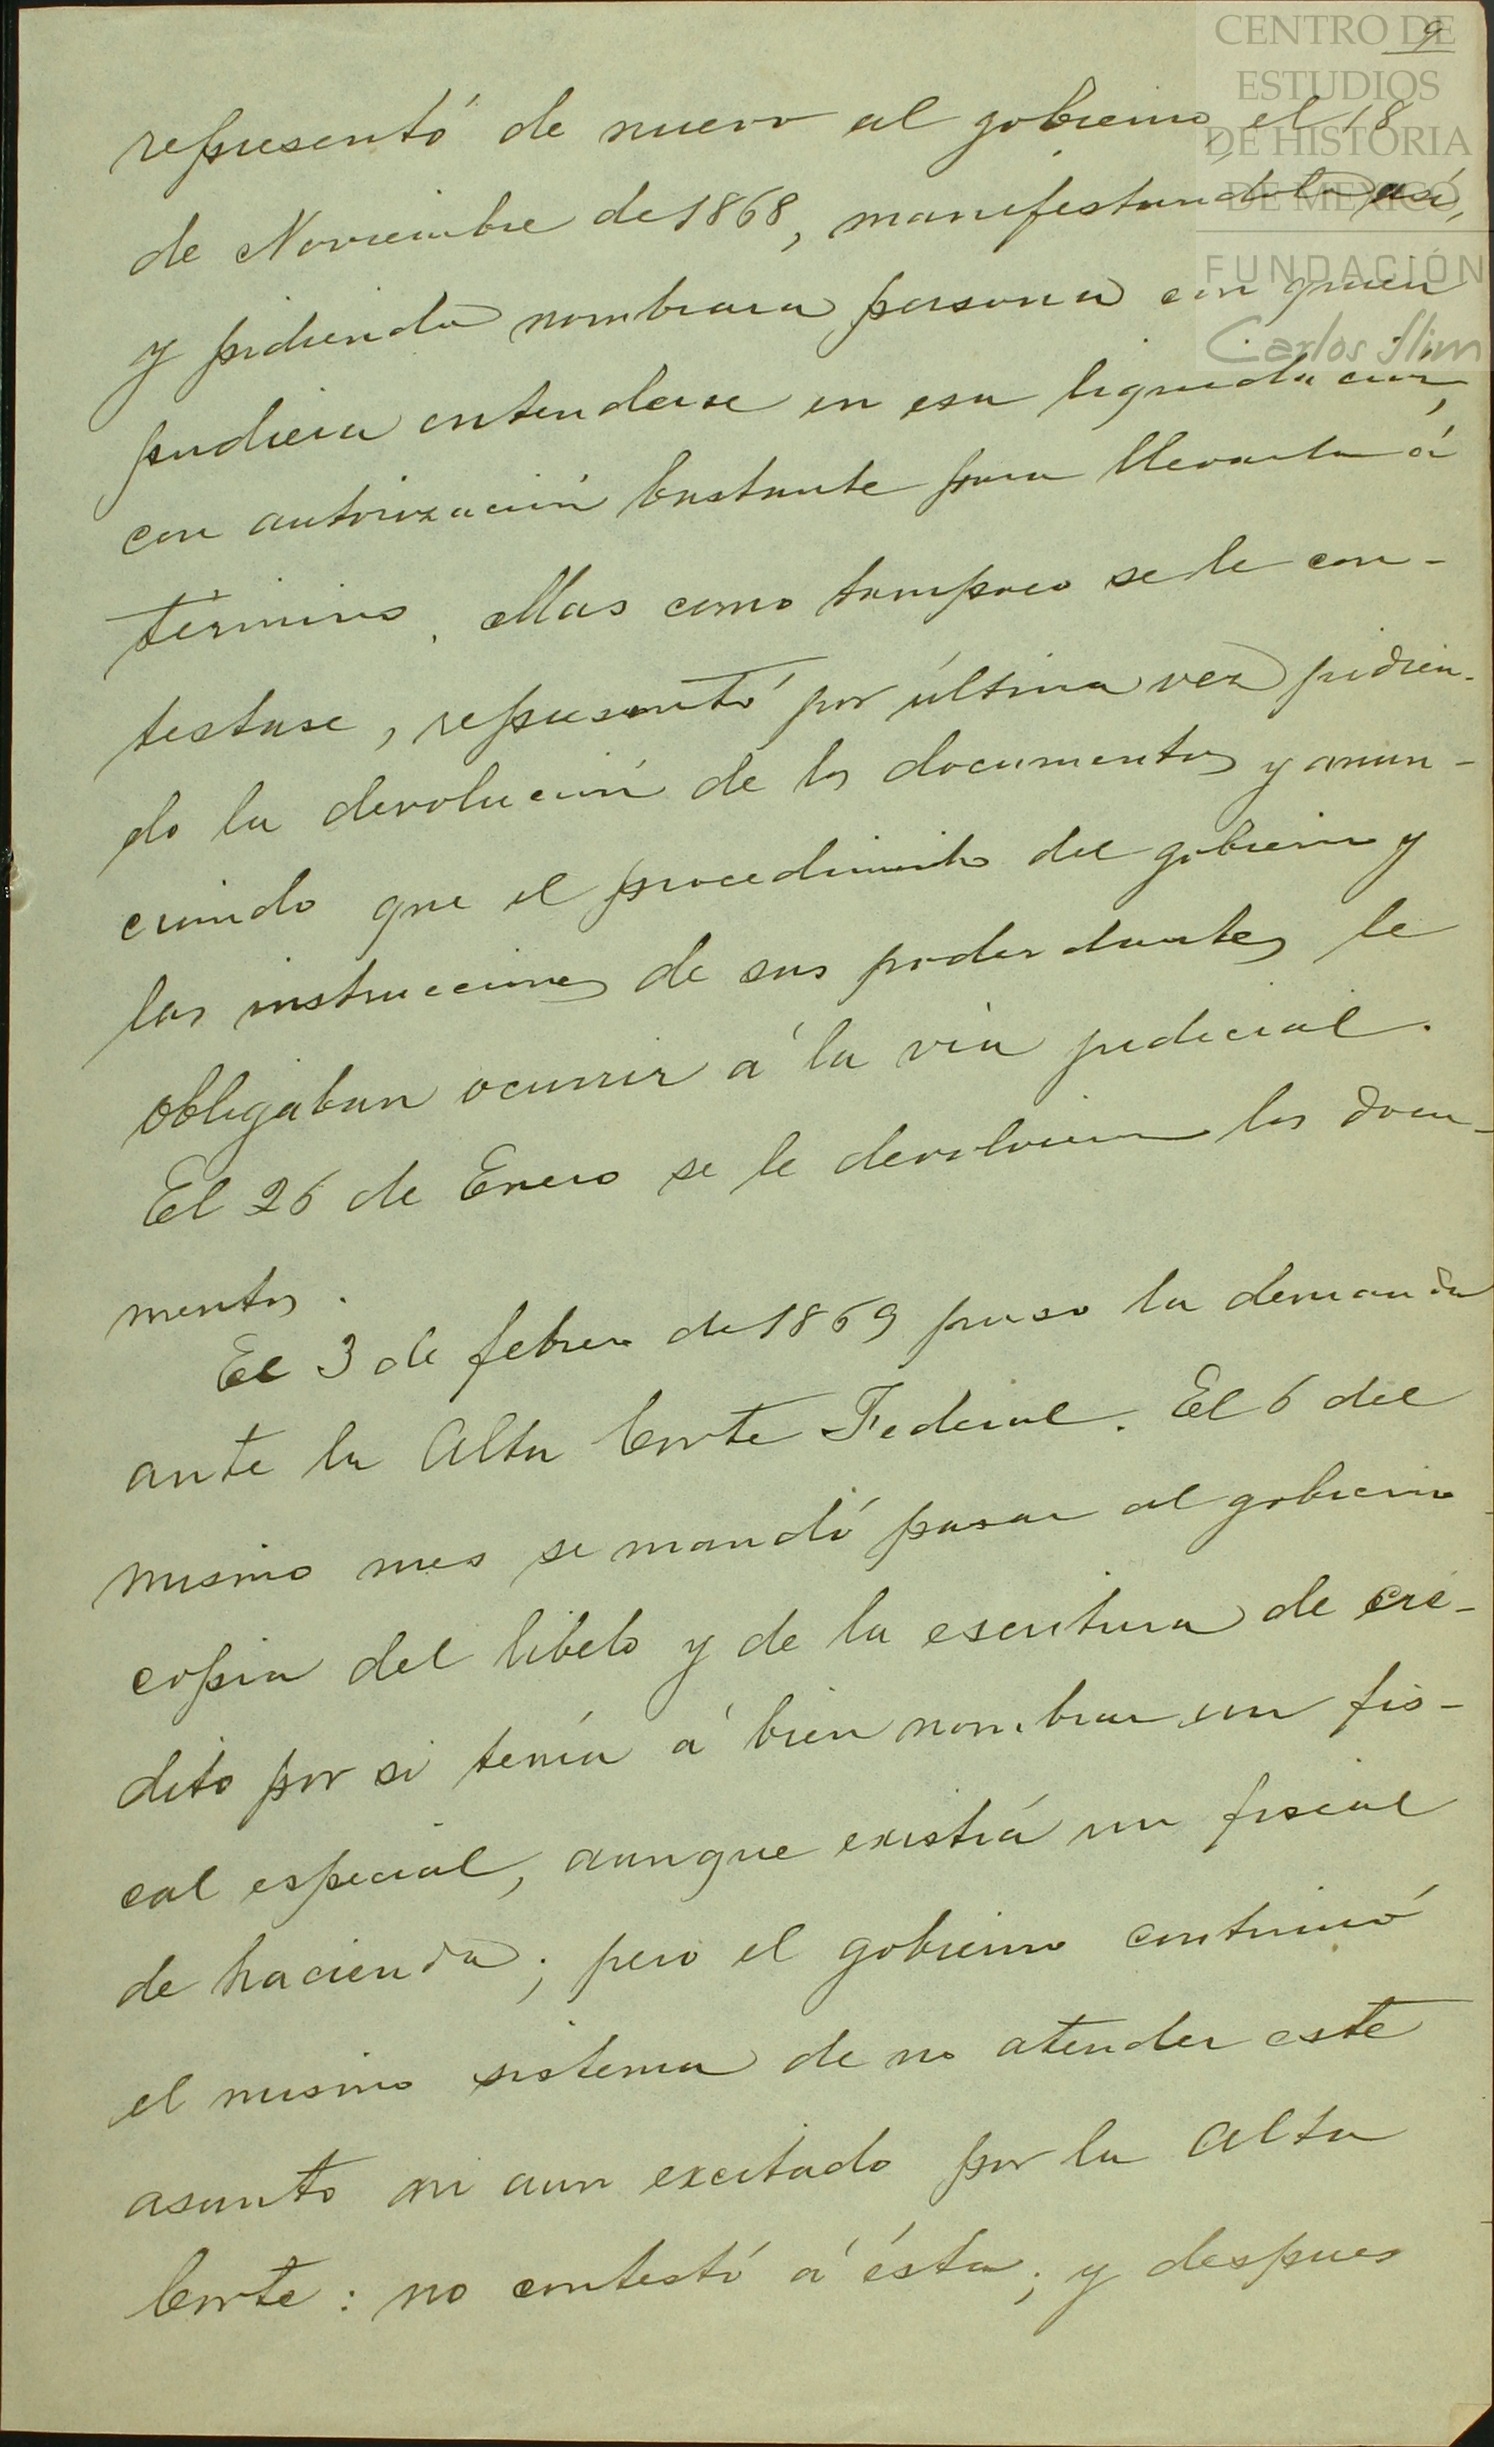 9
CENTRO DE
ESTUDIOS
DE HISTORIA
DE MEXICO
FUNDACIÓN
Carlos Slim
representó de nuevo al gobierno, el 18
de Noviembre de 1868, manifestandolo así,
y pidiendo nombrara persona con quien
pudiera entenderse en esa liquidación,
con autorización bastante para llevarla á
término. Mas como tampoco se le con-
testase, representó por última vez pidien-
do la devolución de los documentos y anun-
ciando que el procedimiento del gobierno y
las instrucciones de sus poderdantes le
obligaban ocurrir á la via judicial.
El 26 de Enero se le devolvieron los docu-
mentos.
El 3 de febrero de 1869 puso la demanda
ante la Alta Corte Federal. El 6 del
mismo mes se mandó pasar al gobierno
copia del libelo y de la escritura de cré-
dito por si tenía á bien nombrar un fis-
cal especial, aunque existiá un fiscal
de hacienda; pero el gobierno continuó
el mismo sistema de no atender este
asunto ni aun excitado por la Alta
Corte: no contestó á ésta; y despues